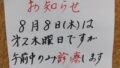 お知らせ
8月8日(木)は
オ2木曜日ですが
午前中のみ診療します